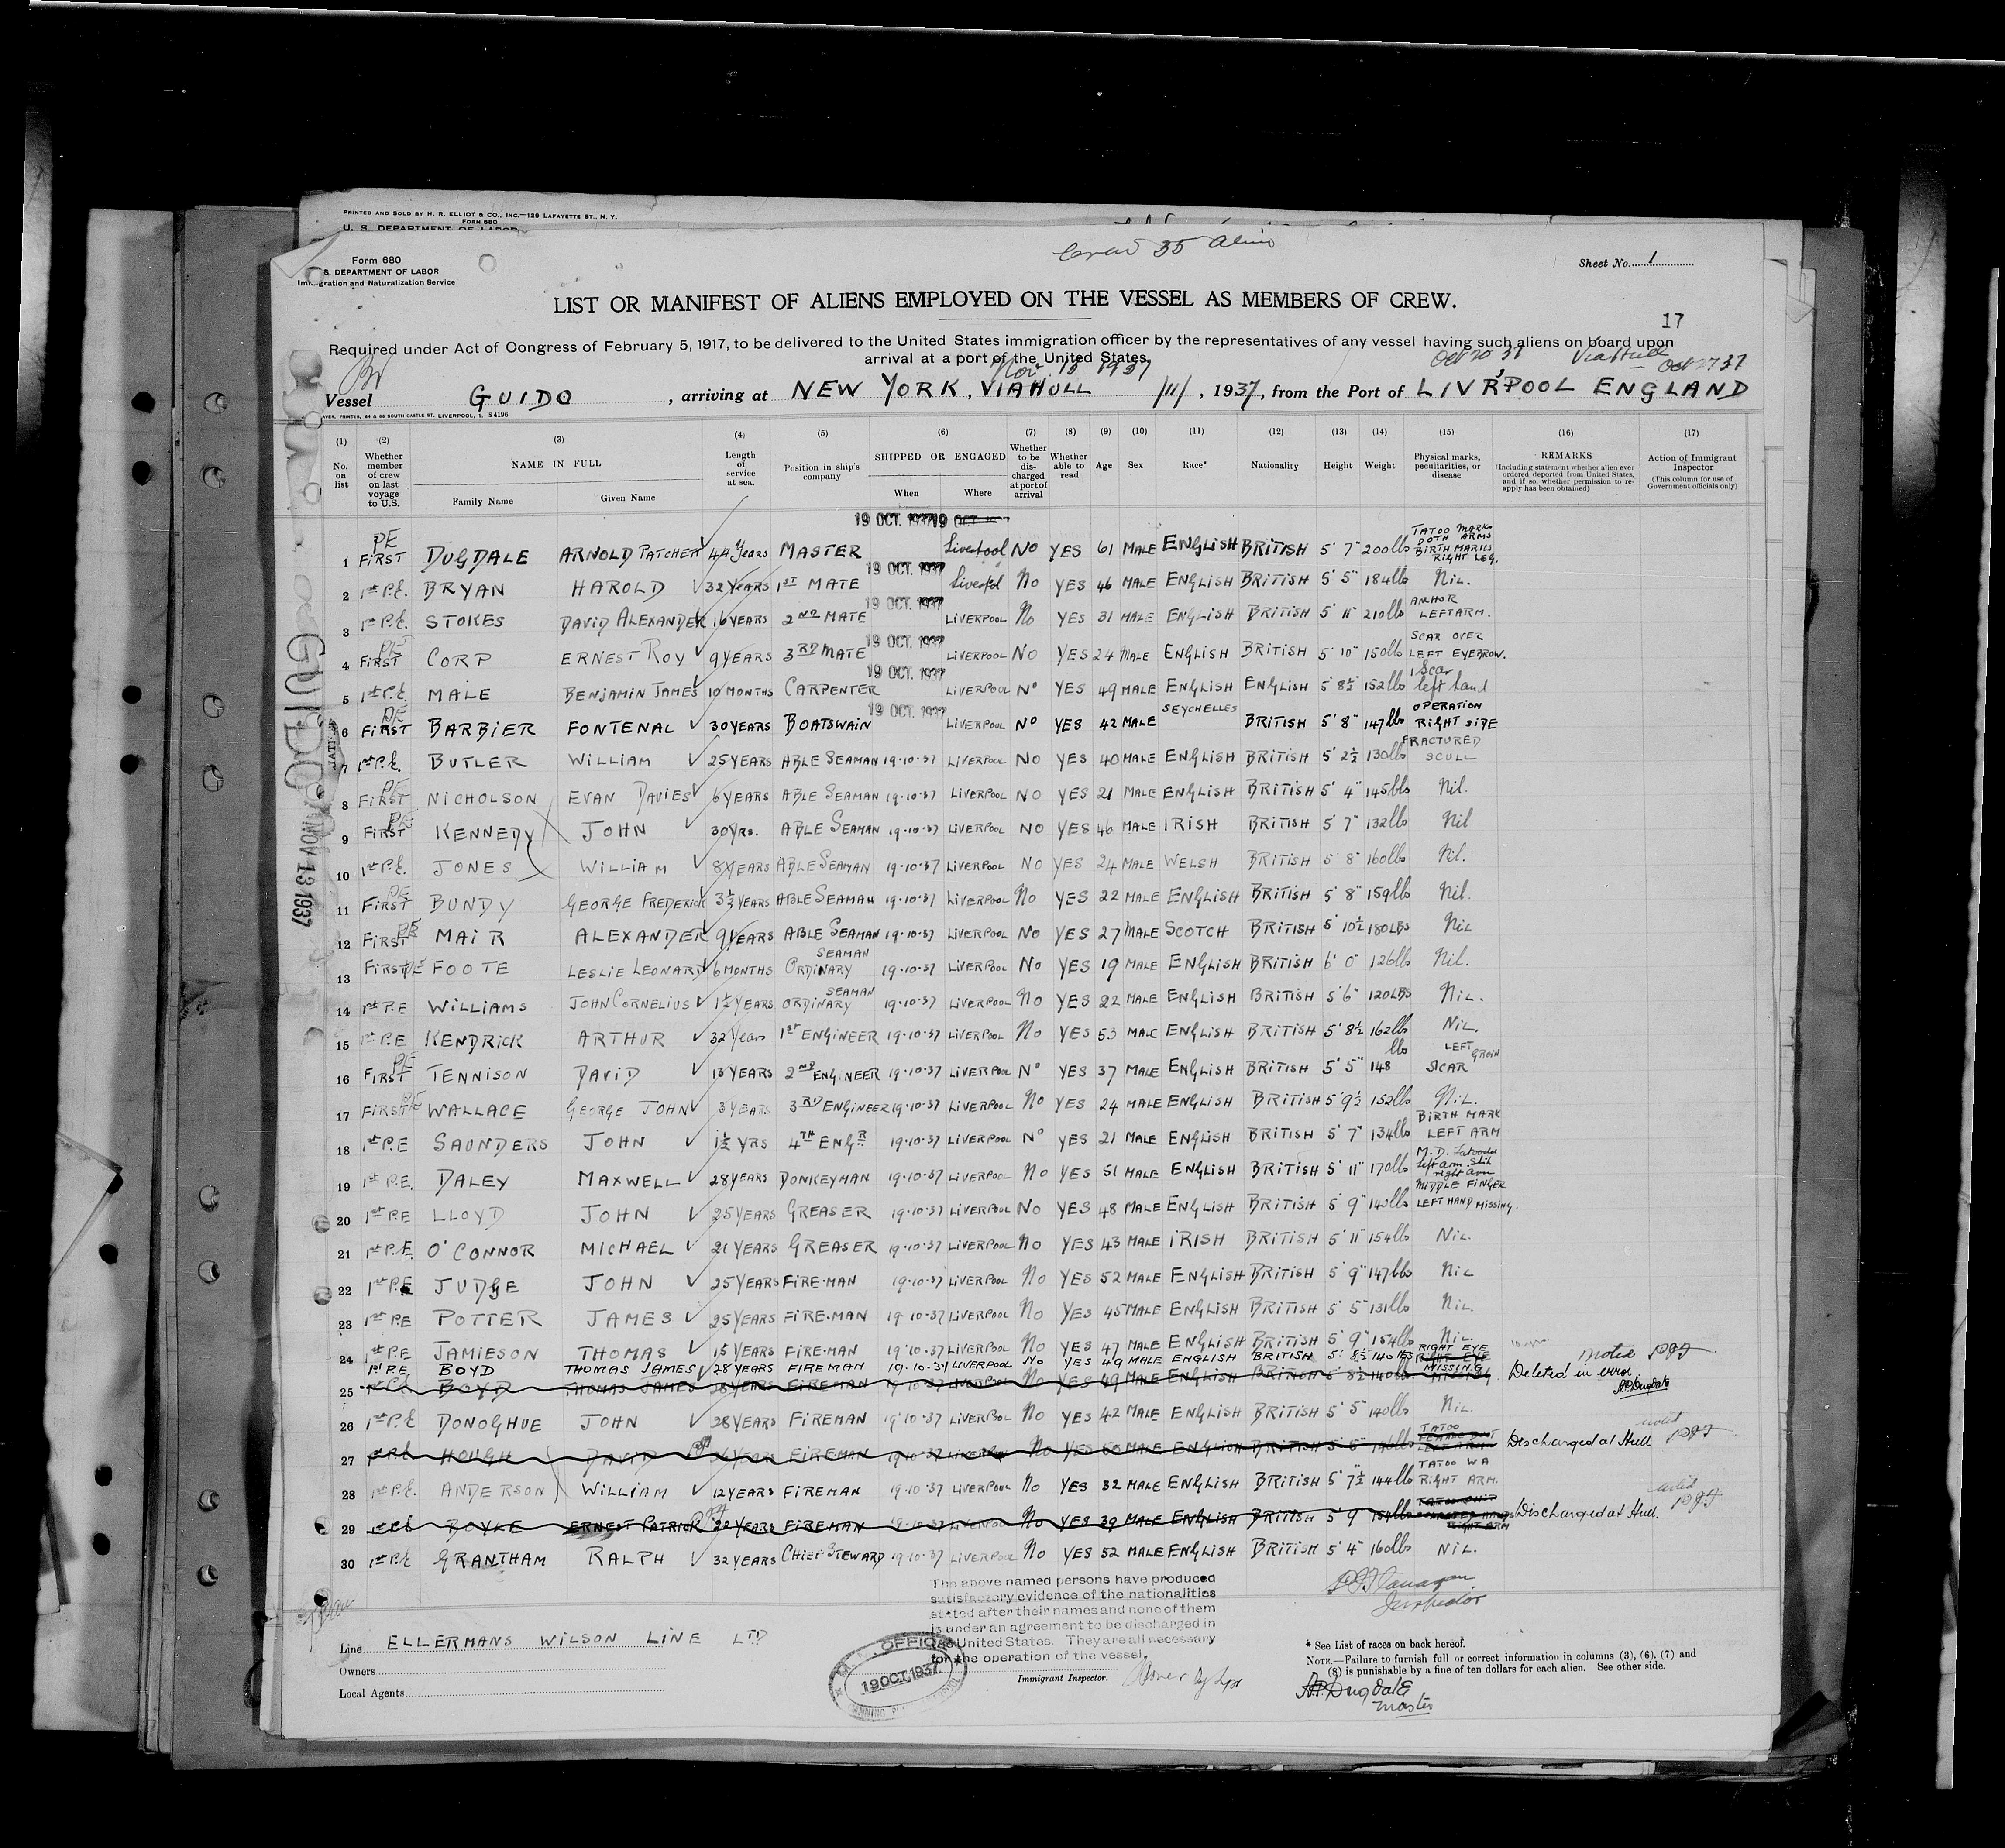 PRINTED AND SOLD BY H. R. ELLIOT & CO., INC.—129 LAFAYETTE ST., N. Y.
FORM 680
U. S. DEPARTMENT OF LABOR
Crew 35 Alien
Form 680
S. DEPARTMENT OF LABOR
Immigration and Naturalization Service
Sheet No. 1
LIST OR MANIFEST OF ALIENS EMPLOYED ON THE VESSEL AS MEMBERS OF CREW.
17
Required under Act of Congress of February 5, 1917, to be delivered to the United States immigration officer by the representatives of any vessel having such aliens on board upon
arrival at a port of the United States.
Nov. 13 1937 Oct 20 37 Via Hull Oct 27 37
Br
Vessel GUIDO, arriving at NEW YORK, VIA HULL /11/, 1937, from the Port of LIVRPOOL ENGLAND
(1) (2) (3) (4) (5) (6) (7) (8) (9) (10) (11) (12) (13) (14) (15) (16) (17)
No. on list
Whether member of crew on last voyage to U.S.
NAME IN FULL
Family Name
Given Name
Length of service at sea.
Position in ship's company
SHIPPED OR ENGAGED
When
Where
Whether to be discharged at port of arrival
Whether able to read
Age
Sex
Race*
Nationality
Height
Weight
Physical marks, peculiarities, or disease
REMARKS
(Including statement whether alien ever ordered deported from United States, and if so, whether permission to re-apply has been obtained)
Action of Immigrant Inspector
(This column for use of Government officials only)
1 PE FIRST DUGDALE ARNOLD PATCHETT 44 Years MASTER 19 OCT. 1937 Liverpool NO YES 61 MALE ENGLISH BRITISH 5' 7" 200lbs TATOO MARKS BOTH ARMS BIRTH MARKS RIGHT LEG.
2 1st P.E. BRYAN HAROLD 32 YEARS 1ST MATE 19 OCT. 1937 Liverpool NO YES 46 MALE ENGLISH BRITISH 5' 5" 184lbs NIL.
3 1st P.E. STOKES DAVID ALEXANDER 16 YEARS 2ND MATE 19 OCT. 1937 LIVERPOOL No YES 31 MALE ENGLISH BRITISH 5' 11" 210lbs ANCHOR LEFT ARM.
4 PE FIRST CORP ERNEST ROY 9 YEARS 3RD MATE 19 OCT. 1937 LIVERPOOL NO YES 24 MALE ENGLISH BRITISH 5' 10" 150lbs SCAR OVER LEFT EYEBROW.
5 1st P.E. MALE BENJAMIN JAMES 10 MONTHS CARPENTER 19 OCT. 1937 LIVERPOOL NO YES 49 MALE ENGLISH ENGLISH 5' 8½ 152lbs 1 Scar left hand
6 PE FIRST BARBIER FONTENAL 30 YEARS BOATSWAIN 19 OCT. 1937 LIVERPOOL NO YES 42 MALE SEYCHELLES BRITISH 5' 8" 147lbs OPERATION RIGHT SIDE
7 1st P.E. BUTLER WILLIAM 25 YEARS ABLE SEAMAN 19-10-37 LIVERPOOL NO YES 40 MALE ENGLISH BRITISH 5' 2½ 130lbs FRACTURED SCULL
8 PE FIRST NICHOLSON EVAN DAVIES 6 YEARS ABLE SEAMAN 19-10-37 LIVERPOOL NO YES 21 MALE ENGLISH BRITISH 5' 4" 145lbs Nil.
9 PE FIRST KENNEDY JOHN 30 YRS. ABLE SEAMAN 19-10-37 LIVERPOOL NO YES 46 MALE IRISH BRITISH 5' 7" 132lbs Nil
10 1st P.E. JONES WILLIAM 8 YEARS ABLE SEAMAN 19-10-37 LIVERPOOL NO YES 24 MALE WELSH BRITISH 5' 8" 160lbs Nil.
11 PE FIRST BUNDY GEORGE FREDERICK 3½ YEARS ABLE SEAMAN 19-10-37 LIVERPOOL No YES 22 MALE ENGLISH BRITISH 5' 8" 159lbs Nil.
12 PE FIRST MAIR ALEXANDER 9 YEARS ABLE SEAMAN 19-10-37 LIVERPOOL NO YES 27 MALE SCOTCH BRITISH 5' 10½ 180LBS NIL
13 FIRST PE FOOTE LESLIE LEONARD 6 MONTHS ORDINARY SEAMAN 19-10-37 LIVERPOOL No YES 19 MALE ENGLISH BRITISH 6' 0" 126lbs Nil.
14 1st P.E WILLIAMS JOHN CORNELIUS 1½ YEARS ORDINARY SEAMAN 19-10-37 LIVERPOOL NO YES 22 MALE ENGLISH BRITISH 5' 6" 120LBS NIL.
15 1st P.E KENDRICK ARTHUR 32 Years 1st ENGINEER 19-10-37 LIVERPOOL No YES 53 MALE ENGLISH BRITISH 5' 8½ 162lbs NIL.
16 PE FIRST TENNISON DAVID 13 YEARS 2ND ENGINEER 19-10-37 LIVERPOOL NO YES 37 MALE ENGLISH BRITISH 5' 5" 148 lbs LEFT GROIN SCAR
17 FIRST PE WALLACE GEORGE JOHN 3 YEARS 3RD ENGINEER 19-10-37 LIVERPOOL NO YES 24 MALE ENGLISH BRITISH 5' 9½ 152lbs NIL.
18 1st P.E SAUNDERS JOHN 1½ YRS 4TH ENGR 19-10-37 LIVERPOOL NO YES 21 MALE ENGLISH BRITISH 5' 7" 134lbs BIRTH MARK LEFT ARM
19 1st P.E. DALEY MAXWELL 28 YEARS DONKEYMAN 19-10-37 LIVERPOOL NO YES 51 MALE ENGLISH BRITISH 5' 11" 170lbs M.D. Tatooed left arm right arm
20 1st P.E LLOYD JOHN 25 YEARS GREASER 19-10-37 LIVERPOOL NO YES 48 MALE ENGLISH BRITISH 5' 9" 140lbs MIDDLE FINGER LEFT HAND MISSING.
21 1st P.E. O'CONNOR MICHAEL 21 YEARS GREASER 19-10-37 LIVERPOOL NO YES 43 MALE IRISH BRITISH 5' 11" 154lbs NIL.
22 1st P.E JUDGE JOHN 25 YEARS FIRE-MAN 19-10-37 LIVERPOOL No YES 52 MALE ENGLISH BRITISH 5' 9" 147lbs NIL
23 1st P.E POTTER JAMES 25 YEARS FIRE-MAN 19-10-37 LIVERPOOL NO YES 45 MALE ENGLISH BRITISH 5' 5" 131lbs NIL.
24 1st P.E JAMIESON THOMAS 15 YEARS FIRE-MAN 19-10-37 LIVERPOOL NO YES 47 MALE ENGLISH BRITISH 5' 9" 154lbs NIL.
1st P.E. BOYD THOMAS JAMES 28 YEARS FIREMAN 19-10-37 LIVERPOOL NO YES 49 MALE ENGLISH BRITISH 5' 8½ 140lbs RIGHT EYE MISSING
25 1st P.E BOYD THOMAS JAMES 28 YEARS FIREMAN 19-10-37 LIVERPOOL No YES 49 MALE ENGLISH BRITISH 5' 8½ 140lbs RIGHT EYE MISSING. Deleted in error A.P. Dugdale noted
26 1st P.E DONOGHUE JOHN 28 YEARS FIREMAN 19-10-37 LIVERPOOL NO YES 42 MALE ENGLISH BRITISH 5' 5" 140lbs NIL.
27 1st P.E HOUGH DAVID YEARS FIREMAN 19-10-37 LIVERPOOL No YES MALE ENGLISH BRITISH TATOO LEFT ARM Discharged at Hull noted
28 1st P.E. ANDERSON WILLIAM 12 YEARS FIREMAN 19-10-37 LIVERPOOL NO YES 32 MALE ENGLISH BRITISH 5' 7½ 144lbs TATOO W A RIGHT ARM.
29 1st P.E BOYKE ERNEST PATRICK 22 YEARS FIREMAN 19-10-37 LIVERPOOL No YES 39 MALE ENGLISH BRITISH 5' 9 154lbs RIGHT ARM Discharged at Hull. noted
30 1st P.E GRANTHAM RALPH 32 YEARS CHIEF STEWARD 19-10-37 LIVERPOOL NO YES 52 MALE ENGLISH BRITISH 5' 4" 160lbs NIL.
GUIDO
NOV 13 1937
The above named persons have produced
satisfactory evidence of the nationalities
stated after their names and none of them
is under an agreement to be discharged in
the United States. They are all necessary
for the operation of the vessel.
Inspector
Line ELLERMANS WILSON LINE LTD
Owners
Local Agents
M. M. OFFICE
19 OCT. 1937
Immigrant Inspector.
* See List of races on back hereof.
NOTE.—Failure to furnish full or correct information in columns (3), (6), (7) and
(8) is punishable by a fine of ten dollars for each alien. See other side.
A.P. Dugdale
Master